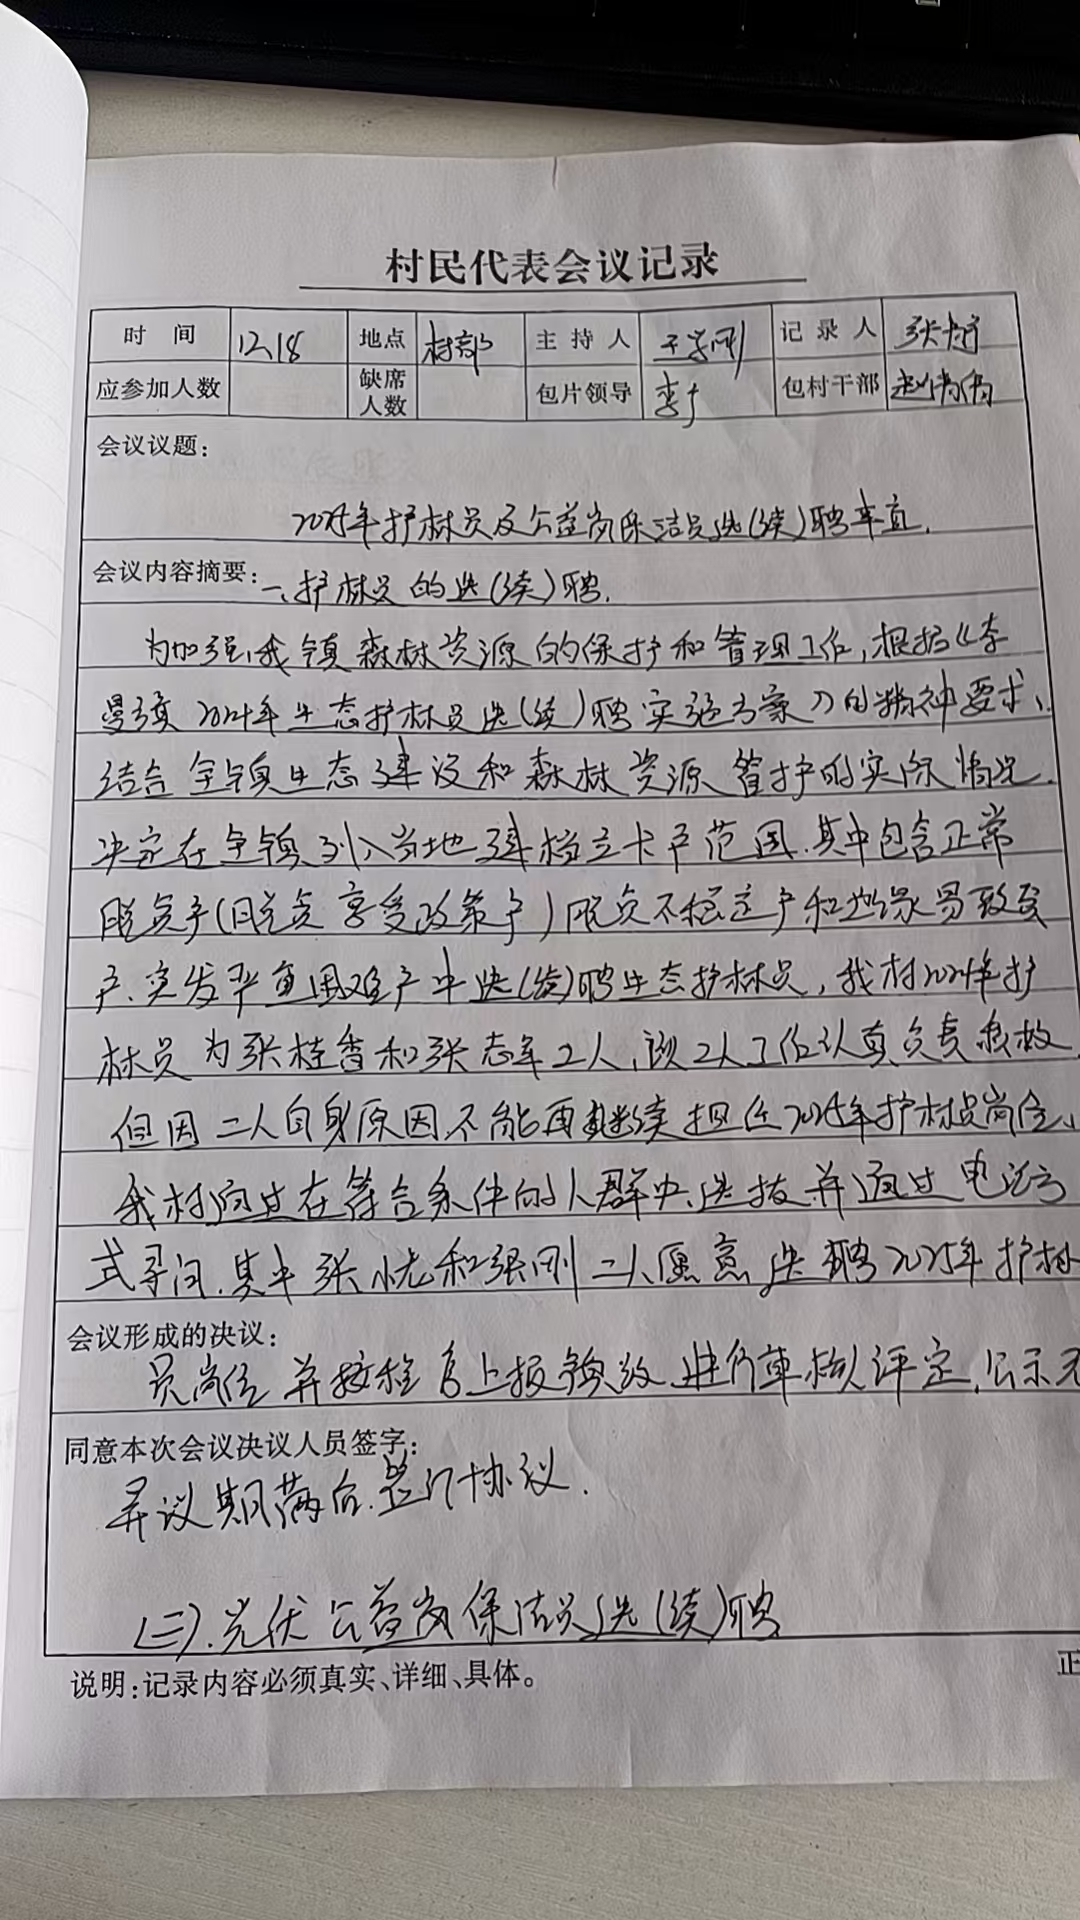 村民代表会议记录
时间 12.18 地点 村部 主持人 记录人 张
应参加人数 缺席人数 包片领导 李 包村干部 赵
会议议题：
2025年护林员及公益岗保洁员选(续)聘事宜.
会议内容摘要： 一、护林员的选(续)聘.
为加强我镇森林资源的保护和管理工作,根据《李
曼镇2024年生态护林员选(续)聘实施方案》的精神要求、
结合全镇生态建设和森林资源管护的实际情况.
决定在全镇列入当地建档立卡户范围.其中包含正常
脱贫户(脱贫享受政策户)脱贫不稳定户和边缘易致贫
户、突发严重困难户中选(续)聘生态护林员,我村2024年护
林员为张桂香和张志军二人,该2人工作认真负责积极
但因二人自身原因.不能再继续担任2025年护林员岗位、
我村通过在符合条件的人群中.选拔并通过电话方
式寻问.其中张忱和张刚二人愿意选聘2025年护林
会议形成的决议：
员岗位并按程序上报镇政.进行审核评定.公示无
同意本次会议决议人员签字：
异议期满后.签订协议.
(二).光伏公益岗保洁员选(续)聘
说明：记录内容必须真实、详细、具体。
正